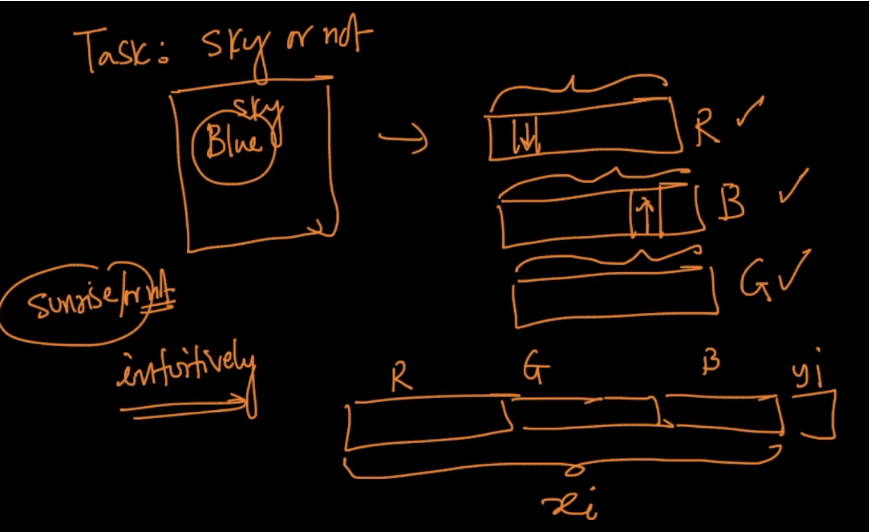 Task: sky or not
sky
Blue
R
B
G
sunrise/or not
intuitively
R G B yi
xi